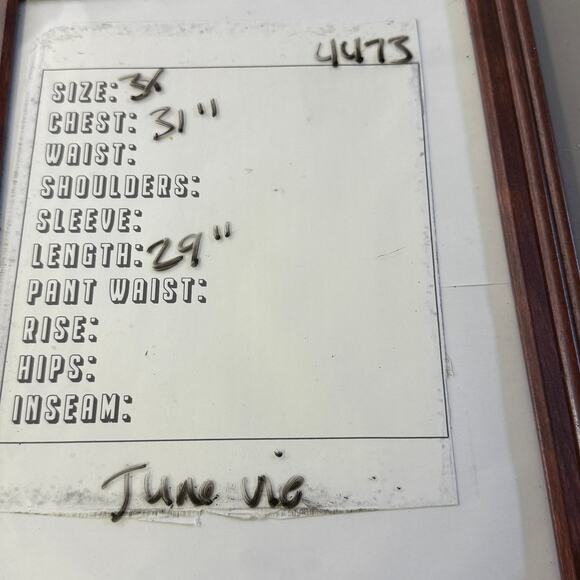 4473
SIZE: 3X
CHEST: 31"
WAIST:
SHOULDERS:
SLEEVE:
LENGTH: 29"
PANT WAIST:
RISE:
HIPS:
INSEAM:
June vic